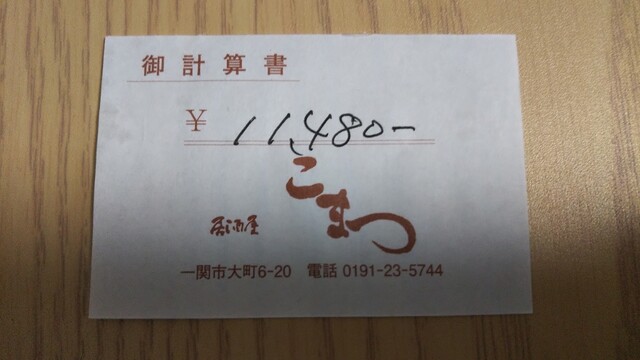 御計算書
¥ 11,480-
居酒屋 こまつ
一関市大町6-20 電話 0191-23-5744